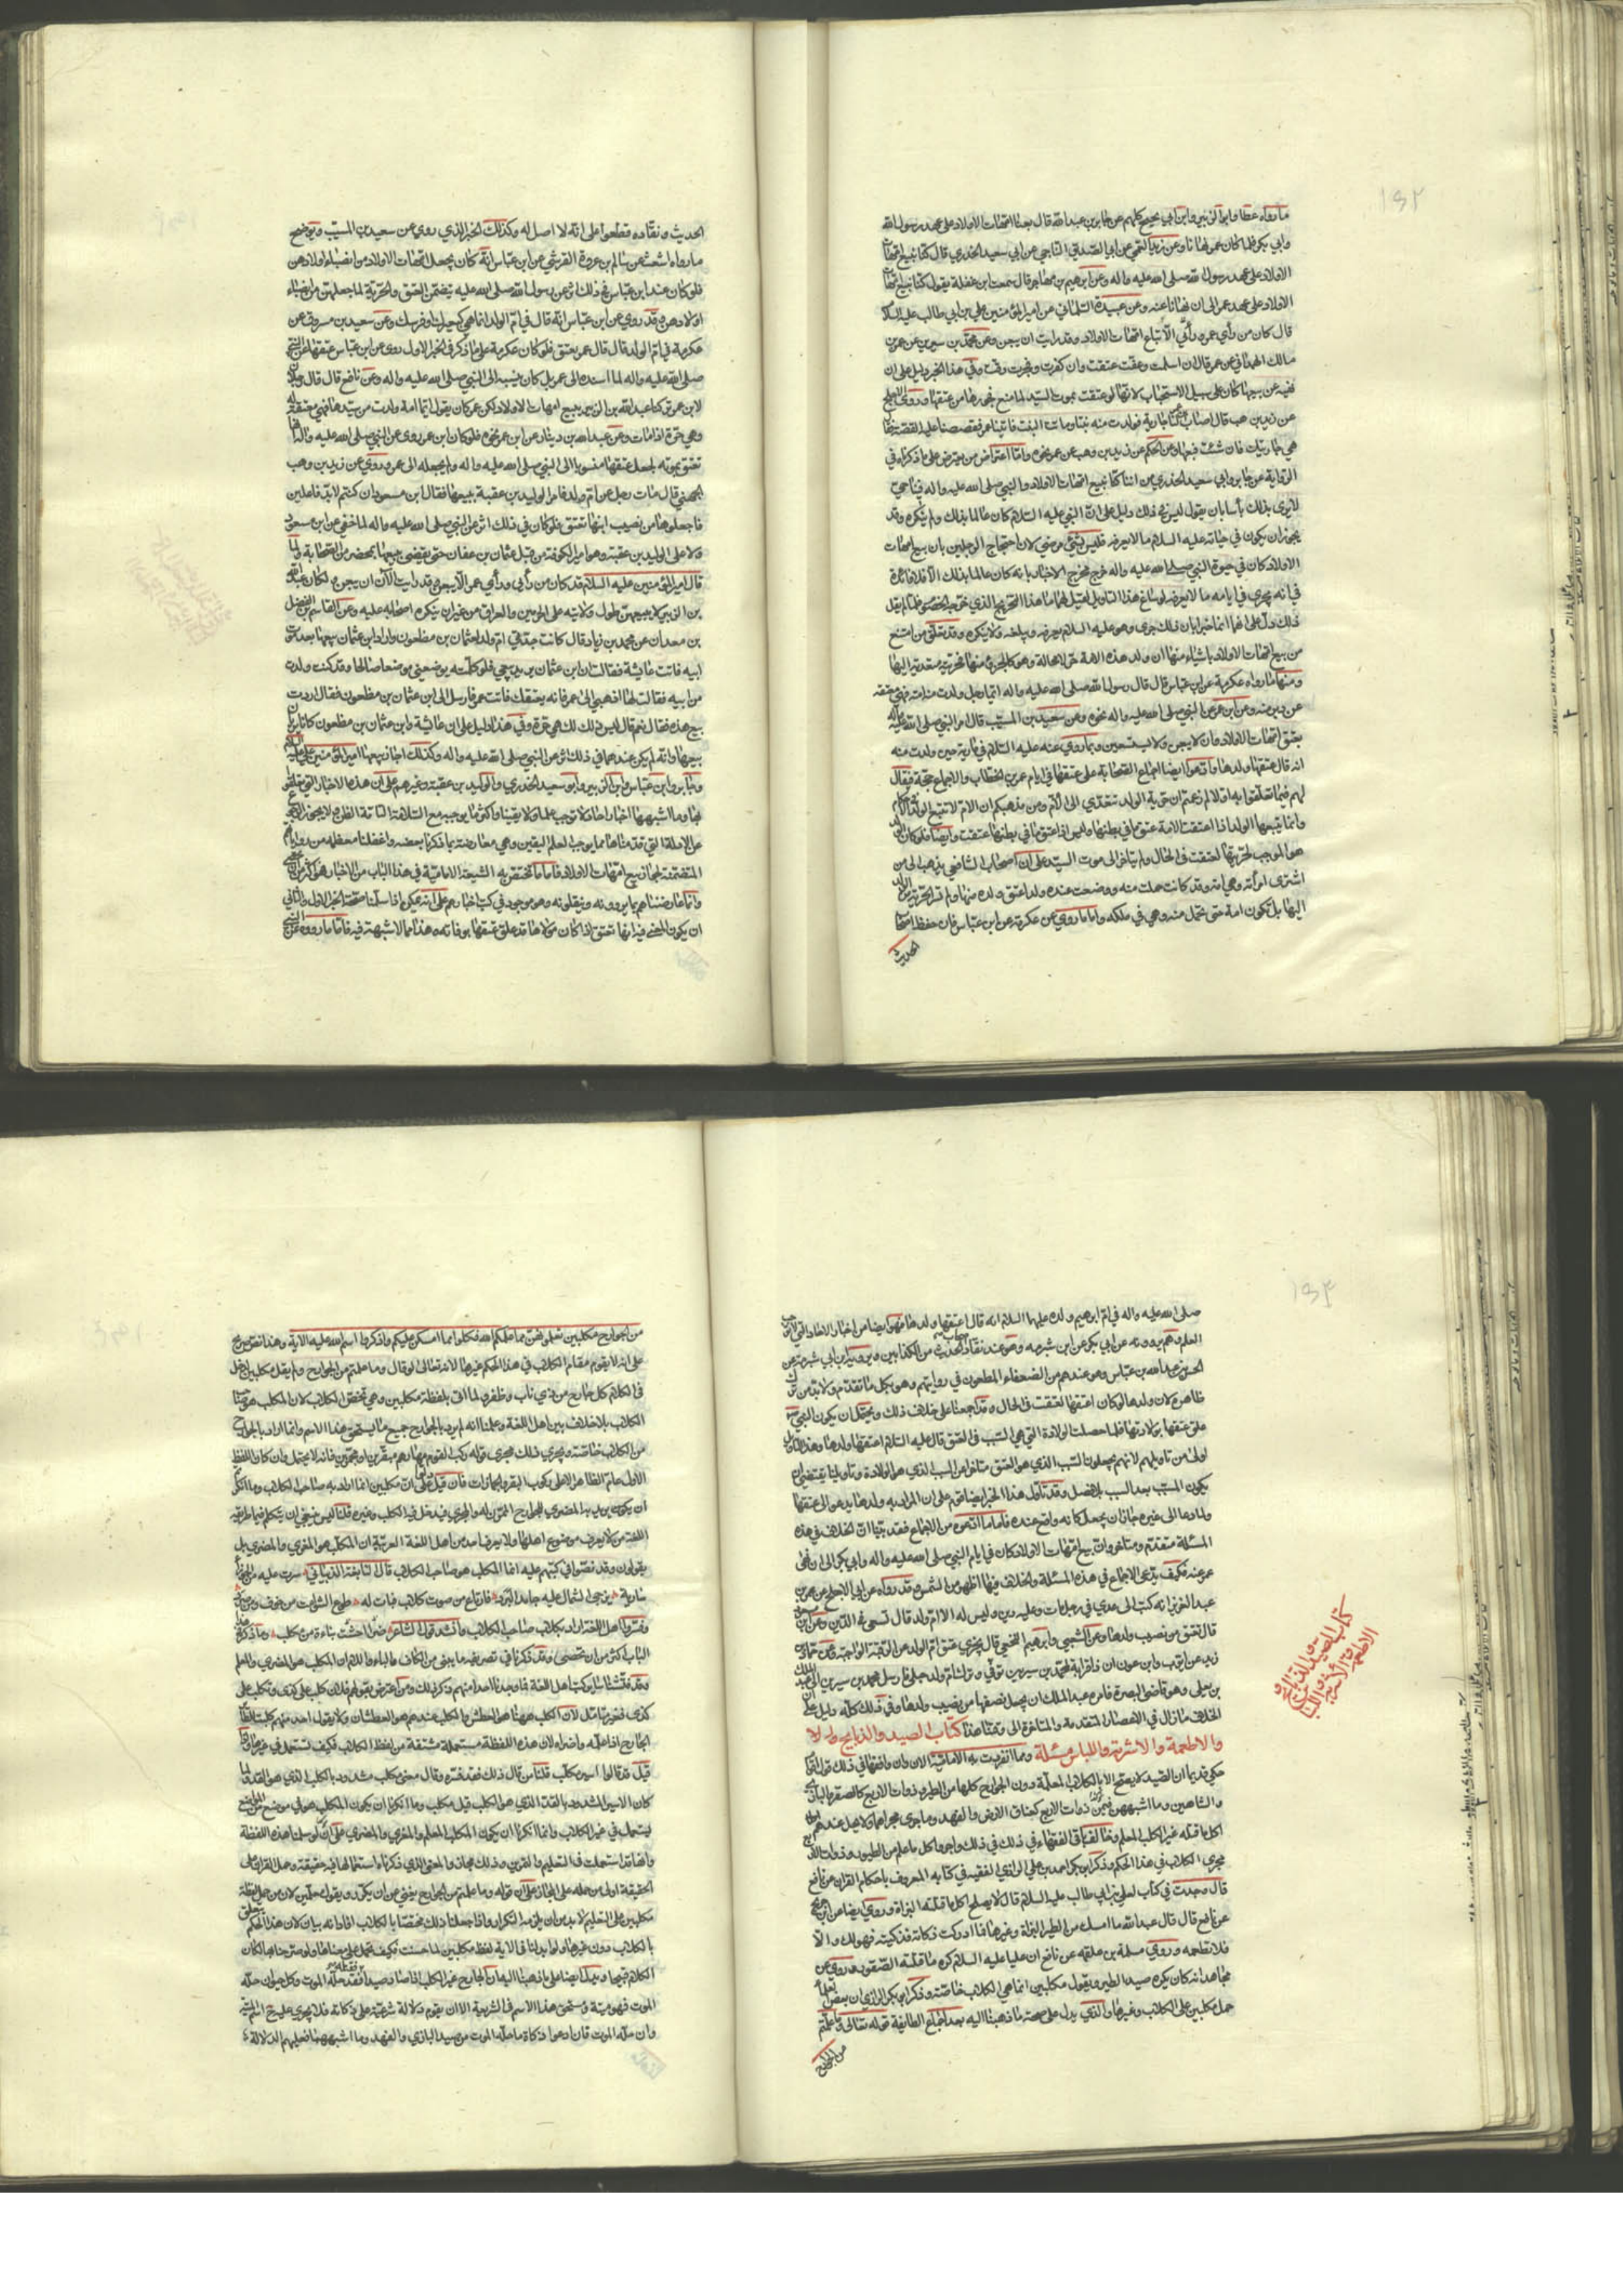 ١٥٢
ما رواه عطا وابو الزبير وابن ابي نجيح كلهم عن جابر بن عبد الله قال بعنا امهات الاولاد على عهد رسول الله
وابي بكر فلما كان عمر نهانا وعن زيد العمي عن ابي الصديق الناجي عن ابي سعيد الخدري قال كنا نبيع امهات
الاولاد على عهد رسول الله صلى الله عليه واله وعن ابرهيم بن مهاجر قال سمعت ابن غفلة يقول كنا نبيع امهات
الاولاد على عهد عمر الى ان نهانا عنه وعن عبيدة السلماني عن امير المؤمنين علي بن ابي طالب عليه السلام
قال كان من رأي عمر ورأيي الا تباع امهات الاولاد وقد رايت ان يبعن وعن محمد بن سيرين عن
مالك الهمداني عن عمر قال ان اسلمت وعفت عتقت وان كفرت وفجرت رقت وفي هذا الخبر دليل على ان
نهيه عن بيعها كان على سبيل الاستحباب لانها لو عتقت بموت السيد لما منع فجورها من عتقها وروى
عن زيد بن وهب قال اصاب جارية فولدت منه بنتا وماتت البنت فاتينا عمر فقصصنا عليه القصة فقال
هي جاريتك فان شئت فبعها وعن الحكم عن زيد بن وهب عن عمر نحوه واما اعتراض من يعترض على ما ذكرناه في
الرواية عن جابر وابي سعيد الخدري من اننا كنا نبيع امهات الاولاد والنبي صلى الله عليه واله فينا حي
لا يرى بذلك بأسا بان يقول ليس في ذلك دليل على ان النبي عليه السلام كان عالما بذلك ولم ينكره وقد
يجوز ان يكون في حياته عليه السلام ما لا يعرفه فليس بشئ مرضي لان احتجاج الرجلين بان بيع امهات
الاولاد كان في حيوة النبي صلى الله عليه واله خرج مخرج الاخبار بانه كان عالما بذلك الا فلا فائدة
في انه جرى في ايامه ما لا يعرفه لو ساغ هذا التاويل لقيل لهما ما هذا التحريم الذي فلما لم يقل
ذلك دل على انهما انما خبرا بان ذلك جرى وهو عليه السلام يعرفه ويبلغه ولا ينكره وقد تعلق من امتنع
من بيع امهات الاولاد باشياء منها ان ولد هذه الامة حر لا محالة وهو كالجزء منها فحريته متعدية اليها
ومنها ما رواه عكرمة عن ابن عباس قال قال رسول الله صلى الله عليه واله ايما رجل ولدت منه امته فهي معتقة
عن دبر منه وعن ابن عمر عن النبي صلى الله عليه واله نحوه وعن سعيد بن المسيب قال امر النبي صلى الله عليه واله
بعتق امهات الاولاد وان لا يبعن ولا وبما روي عنه عليه السلام في مارية حين ولدت منه
انه قال عتقها ولدها وادعوا ايضا اجماع الصحابة على عتقها في ايام عمر بن الخطاب والاجماع حجة فيقال
لهم فيما تعلقوا به اولا لم زعمتم ان حرية الولد تتعدى الى الام ومن مذهبكم ان الام لا تتبع الولد
وانما يتبعها الولد اذا اعتقت الامة عتق ما في بطنها وليس اذا عتق ما في بطنها عتقت وايضا فلو كان الولد
هو الموجب لحريتها لعتقت في الحال ولم يتاخر الى موت السيد على ان اصحاب الشافعي يذهب الى من
اشترى امرأته وهي امة وقد كانت حملت منه ووضعت عنده ولدا عتق ولده منها ولم تسر الحرية من الولد
اليها بل تكون امة حتى تحمل منه وهي في ملكه واما ما روي عن عكرمة عن ابن عباس فان حفظ اصحاب
الحديث
الحديث ونقاده قطعوا على انه لا اصل له وكذلك الخبر الذي روي عن سعيد بن المسيب ويوضح
ما رواه اشعث عن سالم بن عروة القرشي عن ابن عباس انه كان يجعل امهات الاولاد من انصباء اولادهن
فلو كان عند ابن عباس في ذلك اثر عن رسول الله صلى الله عليه يتضمن العتق والحرية لما جعلهن من انصباء
اولادهن وقد روي عن ابن عباس انه قال في ام الولد انما هي كبعيرك وفرسك وعن سعيد بن مسروق عن
عكرمة في ام الولد قال قال عمر يعتق فلو كان عكرمة على ما ذكر في الخبر الاول روى عن ابن عباس عتقها عن النبي
صلى الله عليه واله لما اسنده الى عمر بل كان ينسبه الى النبي صلى الله عليه واله وعن نافع قال قال
لابن عمر تركنا عبد الله بن الزبير يبيع امهات الاولاد لكن عمر كان يقول ايما امة ولدت من سيدها فهي معتقة
وهي حرة اذا مات وعن عبد الله بن دينار عن ابن عمر نحوه فلو كان ابن عمر روى عن النبي صلى الله عليه واله انها
تعتق بموته لجعل عتقها منسوبا الى النبي صلى الله عليه واله ولم يجعله الى عمر وروي عن زيد بن وهب
الجهني قال مات رجل عن ام ولد فامر الوليد بن عقبة ببيعها فقال ابن مسعود ان كنتم لا بد فاعلين
فاجعلوها من نصيب ابنها تعتق فلو كان في ذلك اثر عن النبي صلى الله عليه واله لما خفي عن ابن مسعود
ولا على الوليد بن عقبة وهو امير الكوفة من قبل عثمان بن عفان حتى يقضي ببيعها بمحضر من الصحابة ولما
قال امير المؤمنين عليه السلام قد كان من رأيي ورأي عمر الا يبعن وقد رايت الآن ان يبعن ولكان عبد الله
بن الزبير لا يبيعهن طول ولايته على الحرمين والعراق من غير ان ينكره اصحابه عليه وعن القاسم بن الفضل
بن معدان عن محمد بن زياد قال كانت جدتي ام ولد لعثمان بن مظعون واراد ابن عثمان بيعها بعد موت
ابيه فاتت عايشة فقالت ان ابن عثمان بن يريد بيعي فلو كلمتيه يوضعني موضعا صالحا وقد كنت ولدت
من ابيه فقالت لها اذهبي الى عمر فانه يعتقك فاتت عمر فارسل الى ابن عثمان بن مظعون فقال اردت
بيع هذه فقال نعم قال ليس ذلك لك هي حرة وفي هذا دليل على ان عايشة وابن عثمان بن مظعون كانا يريان
بيعها وانه لم يكن عندهما في ذلك اثر عن النبي صلى الله عليه واله وكذلك اجاز بيعها امير المؤمنين علي عليه السلام
وجابر وابن عباس وابن الزبير وابو سعيد الخدري والوليد بن عقبة وغيرهم على ان هذه الاخبار التي تعلقوا
بها وما اشبهها اخبار احاد لا توجب علما ولا يقينا واكثر ما يوجبه مع السلامة التامة الظن ولا يجوز الرجوع
عن الادلة التي قدمناها مما يوجب العلم اليقين وهي معارضة بما ذكرنا بعضه واغفلنا معظمه من رواياتهم
المتضمنة لجواز بيع امهات الاولاد فاما ما تختص به الشيعة الامامية في هذا الباب من الاخبار فهو اكثر من ان يحصى
وانما عارضناهم بما يروونه وينقلونه وهو موجود في كتب اخبارهم على انه يمكن اذا سلمنا صحة الخبر الاول والثاني
ان يكون المعنى فيه انها تعتق اذا كان مولاها قد علق عتقها بوفاته وهذا مما لا شبهة فيه فاما ما رووه عن النبي
١٥٣
صلى الله عليه واله في ام ابرهيم ولده عليهما السلام انه قال اعتقها ولدها فهو ايضا من اخبار الاحاد التي لا توجب
العلم وهم يروونه عن ابي بكر عن ابن ابي سبرة وهو عند نقاد اصحاب الحديث من الكذابين ويرويه ابن ابي سبرة عن
الحسين بن عبد الله بن عباس وهو عندهم من الضعفاء المطعون في روايتهم وهو بكل ما تقدم ولا بد من ترك
ظاهره لان ولدها لو كان اعتقها لعتقت في الحال وقد اجمعنا على خلاف ذلك ويحتمل ان يكون النبي
علق عتقها بولادتها فلما حصلت الولادة التي هي السبب في العتق قال عليه السلام اعتقها ولدها وهذا التاويل
اولى من تاويلهم لانهم يجعلون السبب الذي هو العتق متاخرا عن السبب الذي هو الولادة وتاويلنا يقتضي ان
يكون المسبب بعد السبب بلا فصل وقد تاول هذا الخبر ايضا قوم على ان المراد به ولدها يدعو الى عتقها
ولما دعا الى غيره جاز ان يجعل كانه واقع عنده فاما ما ادعوه من الاجماع فقد بينا ان الخلاف في هذه
المسئلة متقدم ومتاخر وان بيع امهات الاولاد كان في ايام النبي صلى الله عليه واله وابي بكر الى ان نهى
عمر عنه فكيف يدعى الاجماع في هذه المسئلة والخلاف فيها اظهر من الشمس وقد رواه عن ابي الاجلح عن عمر بن
عبد العزيز انه كتب الى عدي في رجل مات وعليه دين وليس له الا ام ولد قال تسعى في الدين وعن ابن
قال تعتق من نصيب ولدها وعن الشعبي وابرهيم النخعي قال يجزي عتق ام الولد عن الرقبة الواجبة وعن حماد بن
زيد عن ايوب وابن عون ان ذا قرابة لمحمد بن سيرين توفي وترك ام ولد حبلى فارسل محمد بن سيرين الى عبد الملك
بن يعلى وهو قاضي البصرة فامر عبد الملك ان يجعل نصفها من نصيب ولدها وفي ذلك كله دليل على ان
الخلاف ما زال في الاعصار المتقدمة والمتاخرة الى وقتنا هذا كتاب الصيد والذبايح والاد
والاطعمة والاشربة واللباس مسئلة ومما انفردت به الامامية الان وان وافقها في ذلك قول
حكي قديما ان الصيد لا يصح الا بالكلاب المعلمة دون الجوارح كلها من الطير وذوات الاربع كالصقر والبازي
والشاهين وما اشبههن ومن ذوات الاربع كعناق الارض والفهد وما جرى مجراهما ولا يحل عندهم
اكل ما قتله غير الكلب المعلم وخالف باقي الفقهاء في ذلك واجروا كل ما علم من الطيور وذوات الاربع
مجرى الكلاب في هذا الحكم وذكر ابو بكر احمد بن علي الرازي الفقيه في كتابه المعروف باحكام القران عن نافع
قال وجدت في كتاب لعلي بن ابي طالب عليه السلام قال لا يصلح اكل ما قتلته البزاة وروى ايضا عن ابن جريج
عن نافع قال قال عبد الله ما امسك من الطير البزاة وغيرها فما ادركت ذكاته فذكيته فهو لك والا
فلا تطعمه وروى سلمة بن علقمة عن نافع ان عليا عليه السلام كره ما قتلت الصقور وروي عن
مجاهد انه كان يكره صيد الطير ويقول مكلبين انما هي الكلاب خاصة وذكر ابو بكر الرازي ان بعض العلماء
حمل مكلبين على الكلاب وغيرها والذي يدل على صحة ما ذهبنا اليه بعد اجماع الطايفة قوله تعالى وما علمتم
من الجوارح
كتاب الصيد والذبايح و
الاطعمة والاشربة واللباس
من الجوارح مكلبين تعلمونهن مما علمكم الله فكلوا مما امسكن عليكم واذكروا اسم الله عليه الاية وهذا نص صريح
على انه لا يقوم مقام الكلاب في هذا الحكم غيرها لانه تعالى لو قال وما علمتم من الجوارح ولم يقل مكلبين لدخل
في الكلام كل جارح من ذي ناب وظفر ولما اتى بلفظة مكلبين وهي تختص الكلاب لان المكلب هو صاحب
الكلاب بلا خلاف بين اهل اللغة وعلمنا انه لم يرد بالجوارح جميع ما يستحق هذا الاسم وانما اراد بالجوارح
من الكلاب خاصة ويجري ذلك مجرى قوله ركب القوم مهارهم مبقرين او مجمزين فانه لا يحتمل وان كان اللفظ
الاول عام الظاهر الا على ركوب البقر والجمازات فان قيل دلوا على ان مكلبين انما اراد به صاحب الكلاب وما انكرتم
ان يكون يريد به المضري للجوارح الممرن له والمجري فيدخل فيه الكلب وغيره قلنا ليس ينبغي ان يتكلم فيما طريقه
اللغة من لا يعرف موضوع اهلها ولا يعرف احد من اهل اللغة العربية ان المكلب هو المغري والمضري بل
يقولون وقد نصوا في كتبهم عليه انما المكلب هو صاحب الكلاب قال النابغة الذبياني سرت عليه من الجوزاء
سارية يزجي الشمال عليه جامد البرد فارتاع من صوت كلاب فبات له طوع الشوامت من خوف ومن صرد
وفسروا اهل اللغة اراد بكلاب صاحب الكلاب وانشد قول الشاعر ضراء احست نباءة من مكلب وما ذكره
الباب اكثر من ان تحصى وقد ذكرنا في تصريف ما يبنى من الكاف والباء واللام ان المكلب هو المضري والمعلم
وقد فتشنا ساير كتب اهل اللغة فما وجدنا احدا منهم ذكر ذلك ومن اعترض بقولهم فلان كلب على كذى وتكلب على
كذى فغير متامل لان الكلب ههنا هو العطش والكلب عندهم هو العطشان ولا يقول احد منهم كلبت
الجارح اذا علمته واضراه لان هذه اللفظة مستعملة مشتقة من لفظ الكلاب فكيف تستعمل في غيرها فان
قيل قد قالوا اسير مكلب قلنا من قال ذلك فقد فسره وقال معنى مكلب مشدود بالكلب الذي هو القد ولما
كان الاسير المشدود بالقد الذي هو الكلب قيل مكلب وما انكرنا ان يكون المكلب هو في موضع من المواضع
يستعمل في غير الكلاب وانما انكرنا ان يكون المكلب المعلم والمغري والمضري على ان لو سلمنا هذه اللفظة
وانها قد استعملت في التعليم والتمرين وذلك مجاز والمعنى الذي ذكرناه استعمالها فيه حقيقة وحمل القران على
الحقيقة اولى من حمله على المجاز على ان قوله وما علمتم من الجوارح يغني عن ان يكرر ويقول معلمين لان من حمل لفظة
مكلبين على التعليم لا بد من ان يلزمه التكرار واذا جعلنا ذلك مختصا بالكلاب افاد لانه بيان لان هذا الحكم يتعلق
بالكلاب دون غيرها ولو ابدلنا في الاية لفظ مكلبين لما حسنت فكيف تحمل على معناها ولو صرحنا بها لكان
الكلام قبيحا ويدل ايضا على ما ذهبنا اليه ان الجارح غير الكلب اذا صاد صيدا فقتله فقد حله الموت وكل حيوان حله
الموت فهو ميتة ويستحق هذا الاسم في الشريعة الا ان يقوم دلالة شرعية على ذكاته فلا يجري عليه اسم الميتة
وان حله الموت فان ادعوا ذكاة ما حله الموت من صيد البازي والفهد وما اشبههما فعليهم الدلالة